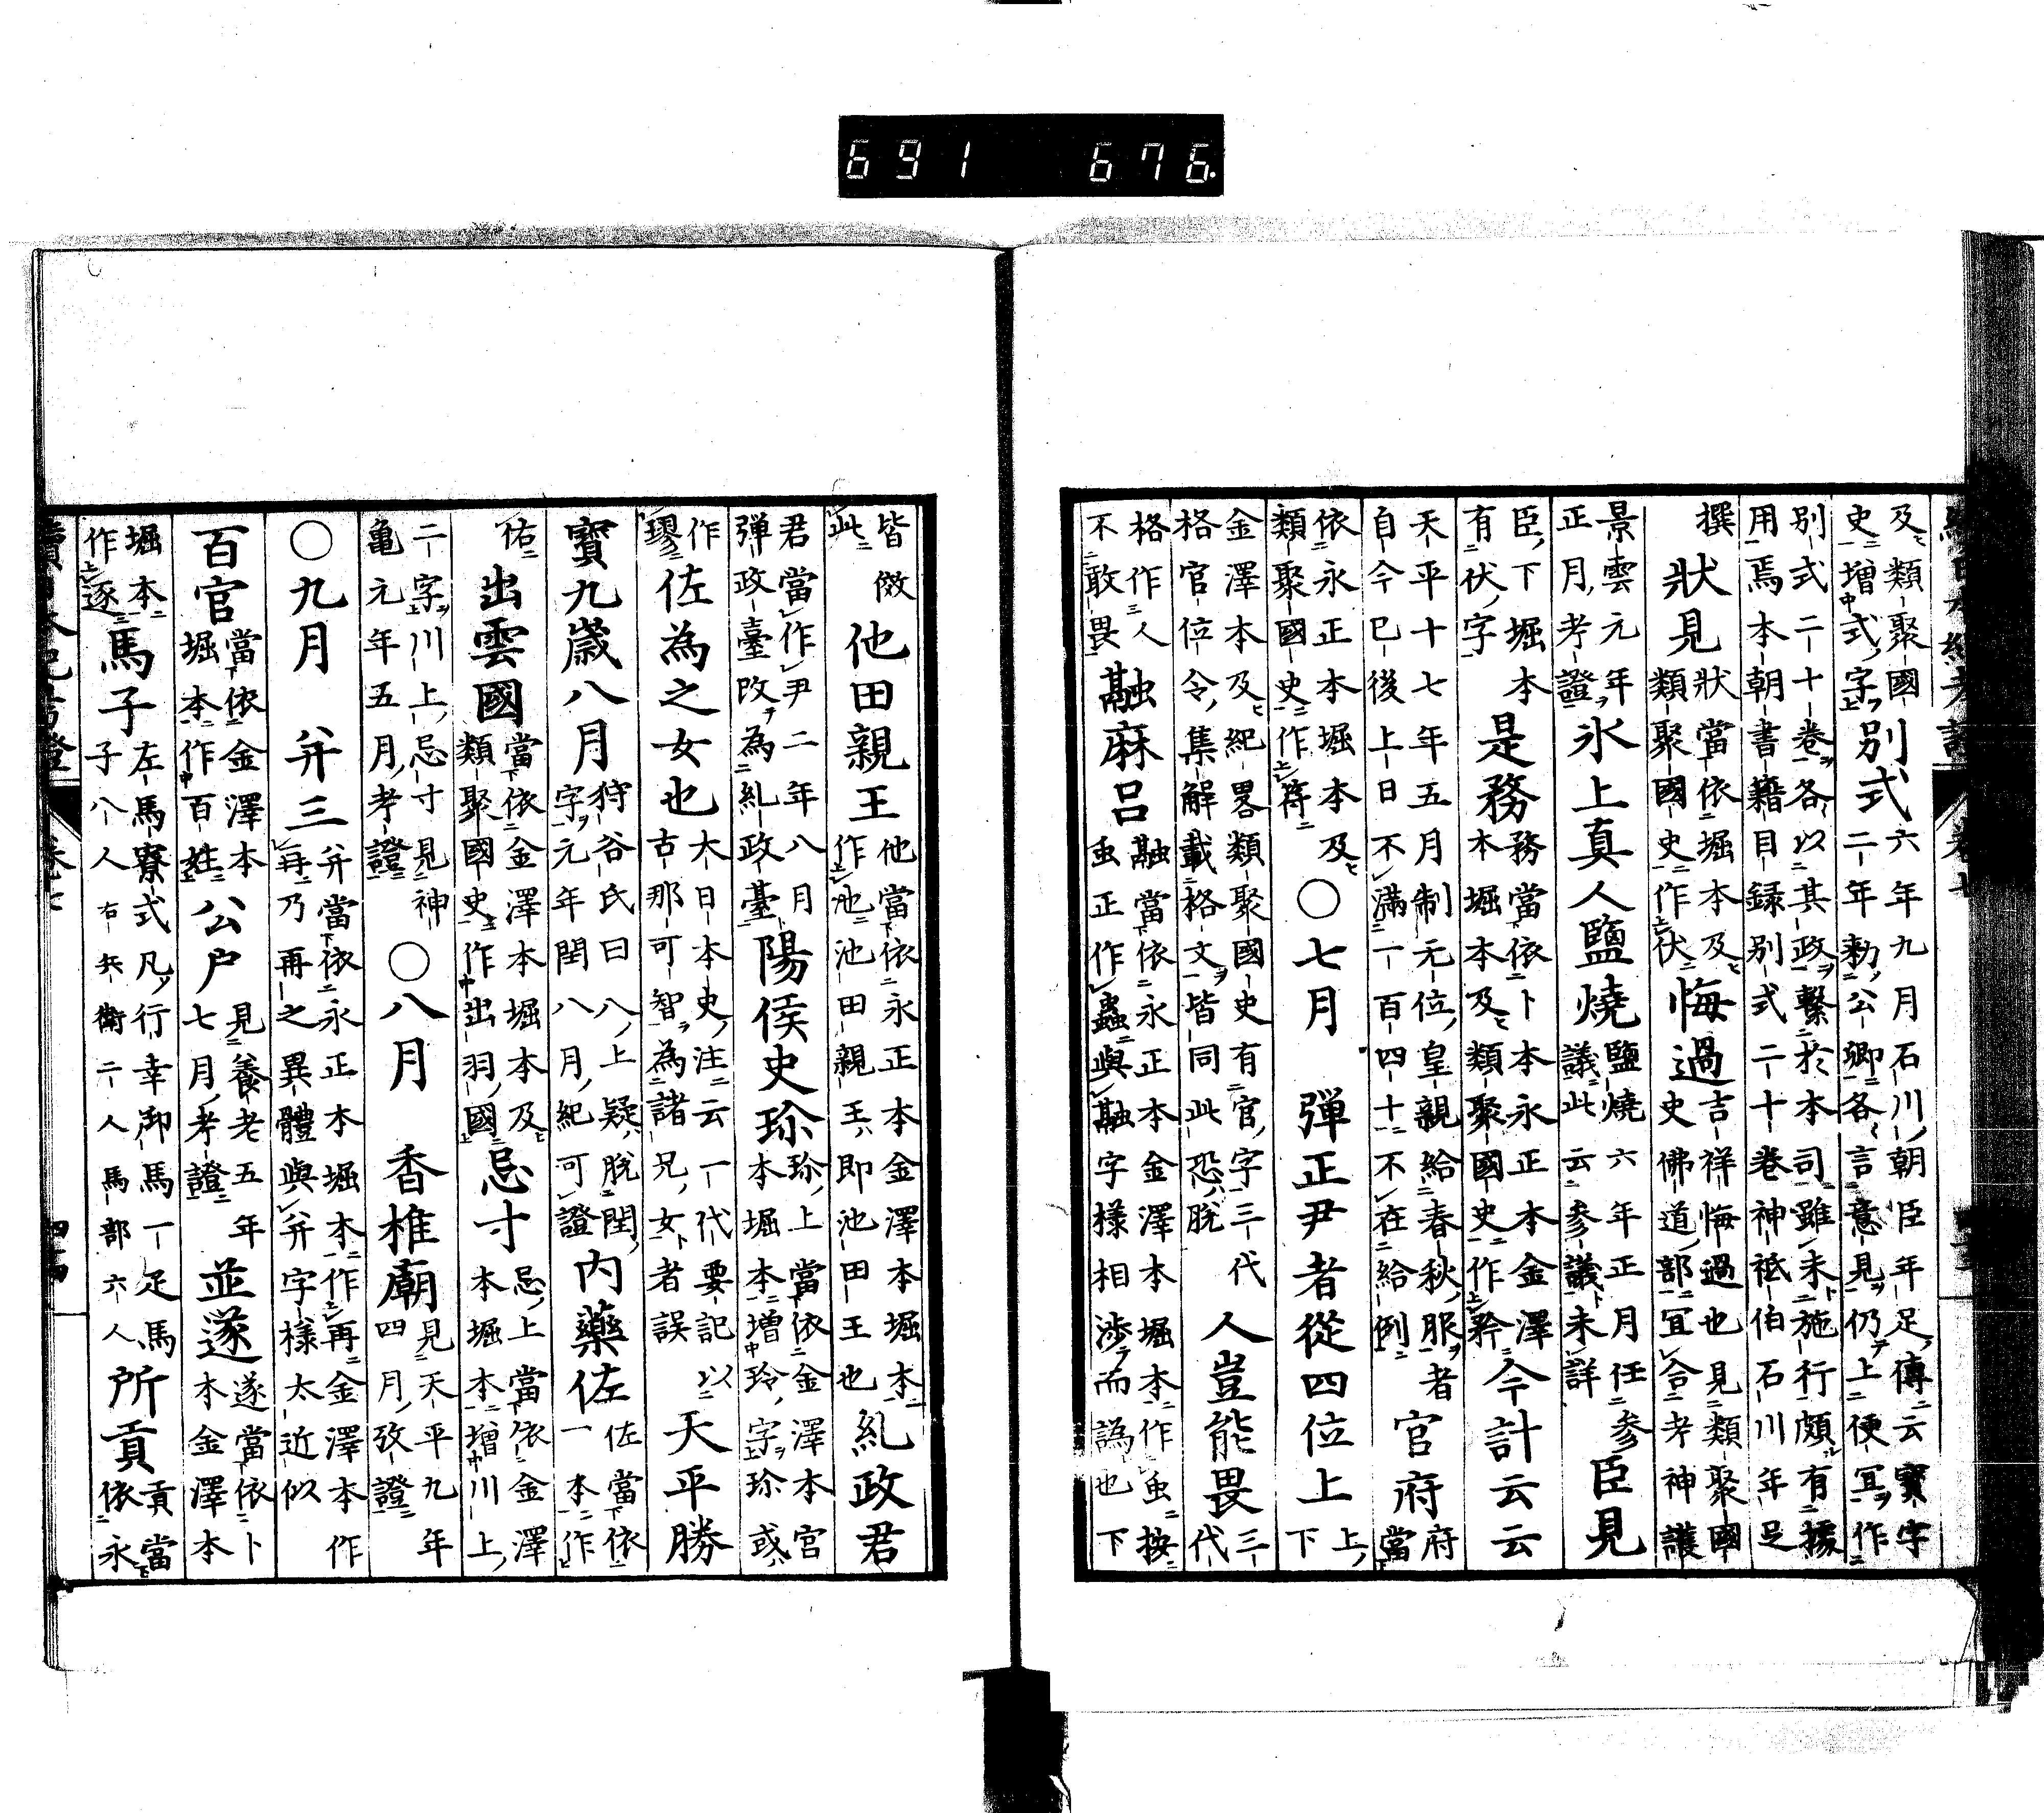 及類聚國史增式字別式六年九月石川朝臣年足傳云寶字二年勅公卿各言意見仍上便宜作
別式二十卷各以其政繫於本司雖未施行頗有據用焉本朝書籍目録別式二十卷神祇伯石川年足
撰狀見狀當依堀本及類聚國史作伏悔過吉祥悔過也見類聚國史佛道部宜合考神護
景雲元年正月考證氷上真人鹽燒鹽燒六年正月任参議此云参議未詳臣見
臣下堀本有伏字是務務當依卜本永正本金澤本堀本及類聚國史作矜今計云云
天平十七年五月制无位皇親給春秋服者自今已後上日不滿一百四十不在給例官府府當
依永正本堀本及類聚國史作符○七月 弾正尹者從四位上上下
金澤本及紀畧類聚國史有官字三代格官位令集解載格文皆同此恐脫人豈能畏三代
格作人不敢畏融麻呂融當依永正本金澤本堀本作䖝按虫正作蟲與融字様相渉而譌也下
皆倣此他田親王他當依永正本金澤本堀本作池池田親王即池田王也糺政君
君當作尹二年八月弾政臺改為糺政臺陽侯史珎珎上當依金澤本宮本堀本增玲字珎或
作璆佐為之女也大日本史注云一代要記以古那可智為諸兄女者誤天平勝
寶九歳八月狩谷氏曰八上疑脫閏字元年閏八月紀可證內藥佐佐當依一本作
佑出雲國當依金澤本堀本及類聚國史作出羽國忌寸忌上當依金澤本堀本增川上
二字川上忌寸見神亀元年五月考證○八月 香椎廟見天平九年四月攷證
○九月 弁三弁當依永正本堀本作再金澤本作冄乃再之異體與弁字様太近似
百官當依金澤本堀本作百姓公户見養老五年七月考證並遂遂當依卜本金澤本
堀本作逐馬子左馬寮式凡行幸御馬一疋馬子八人右兵衛二人馬部六人所貢貢當依永
691 676